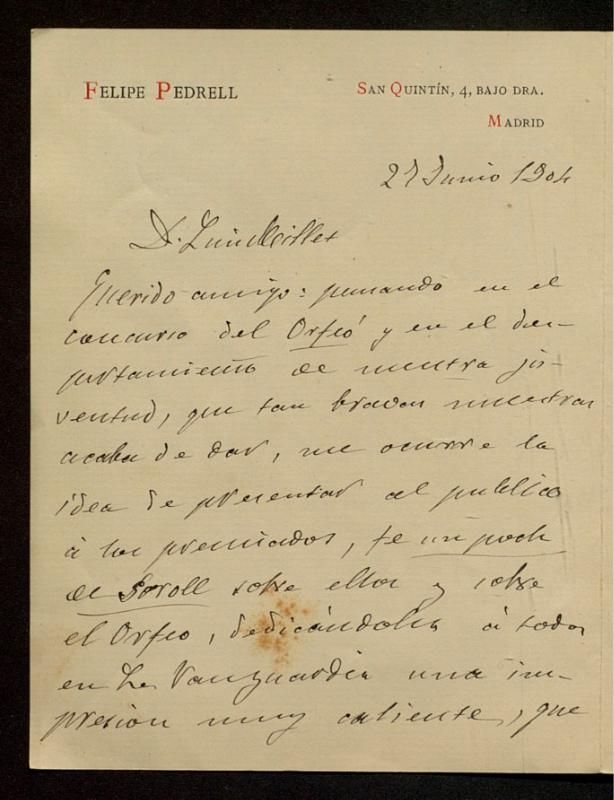 FELIPE PEDRELL
SAN QUINTÍN, 4, BAJO DRA.
MADRID
27 Junio 1904
D. Luis Millet
Querido amigo: pensando en el
concurso del Orfeó y en el des-
pertamiento de nuestra ju-
ventud, que tan bravas muestras
acaba de dar, me ocurre la
idea de presentar al publico
á los premiados, fe un poch
de soroll sobre ellos y sobre
el Orfeo, dedicándoles á todos
en La Vanguardia una im-
presion muy caliente, que